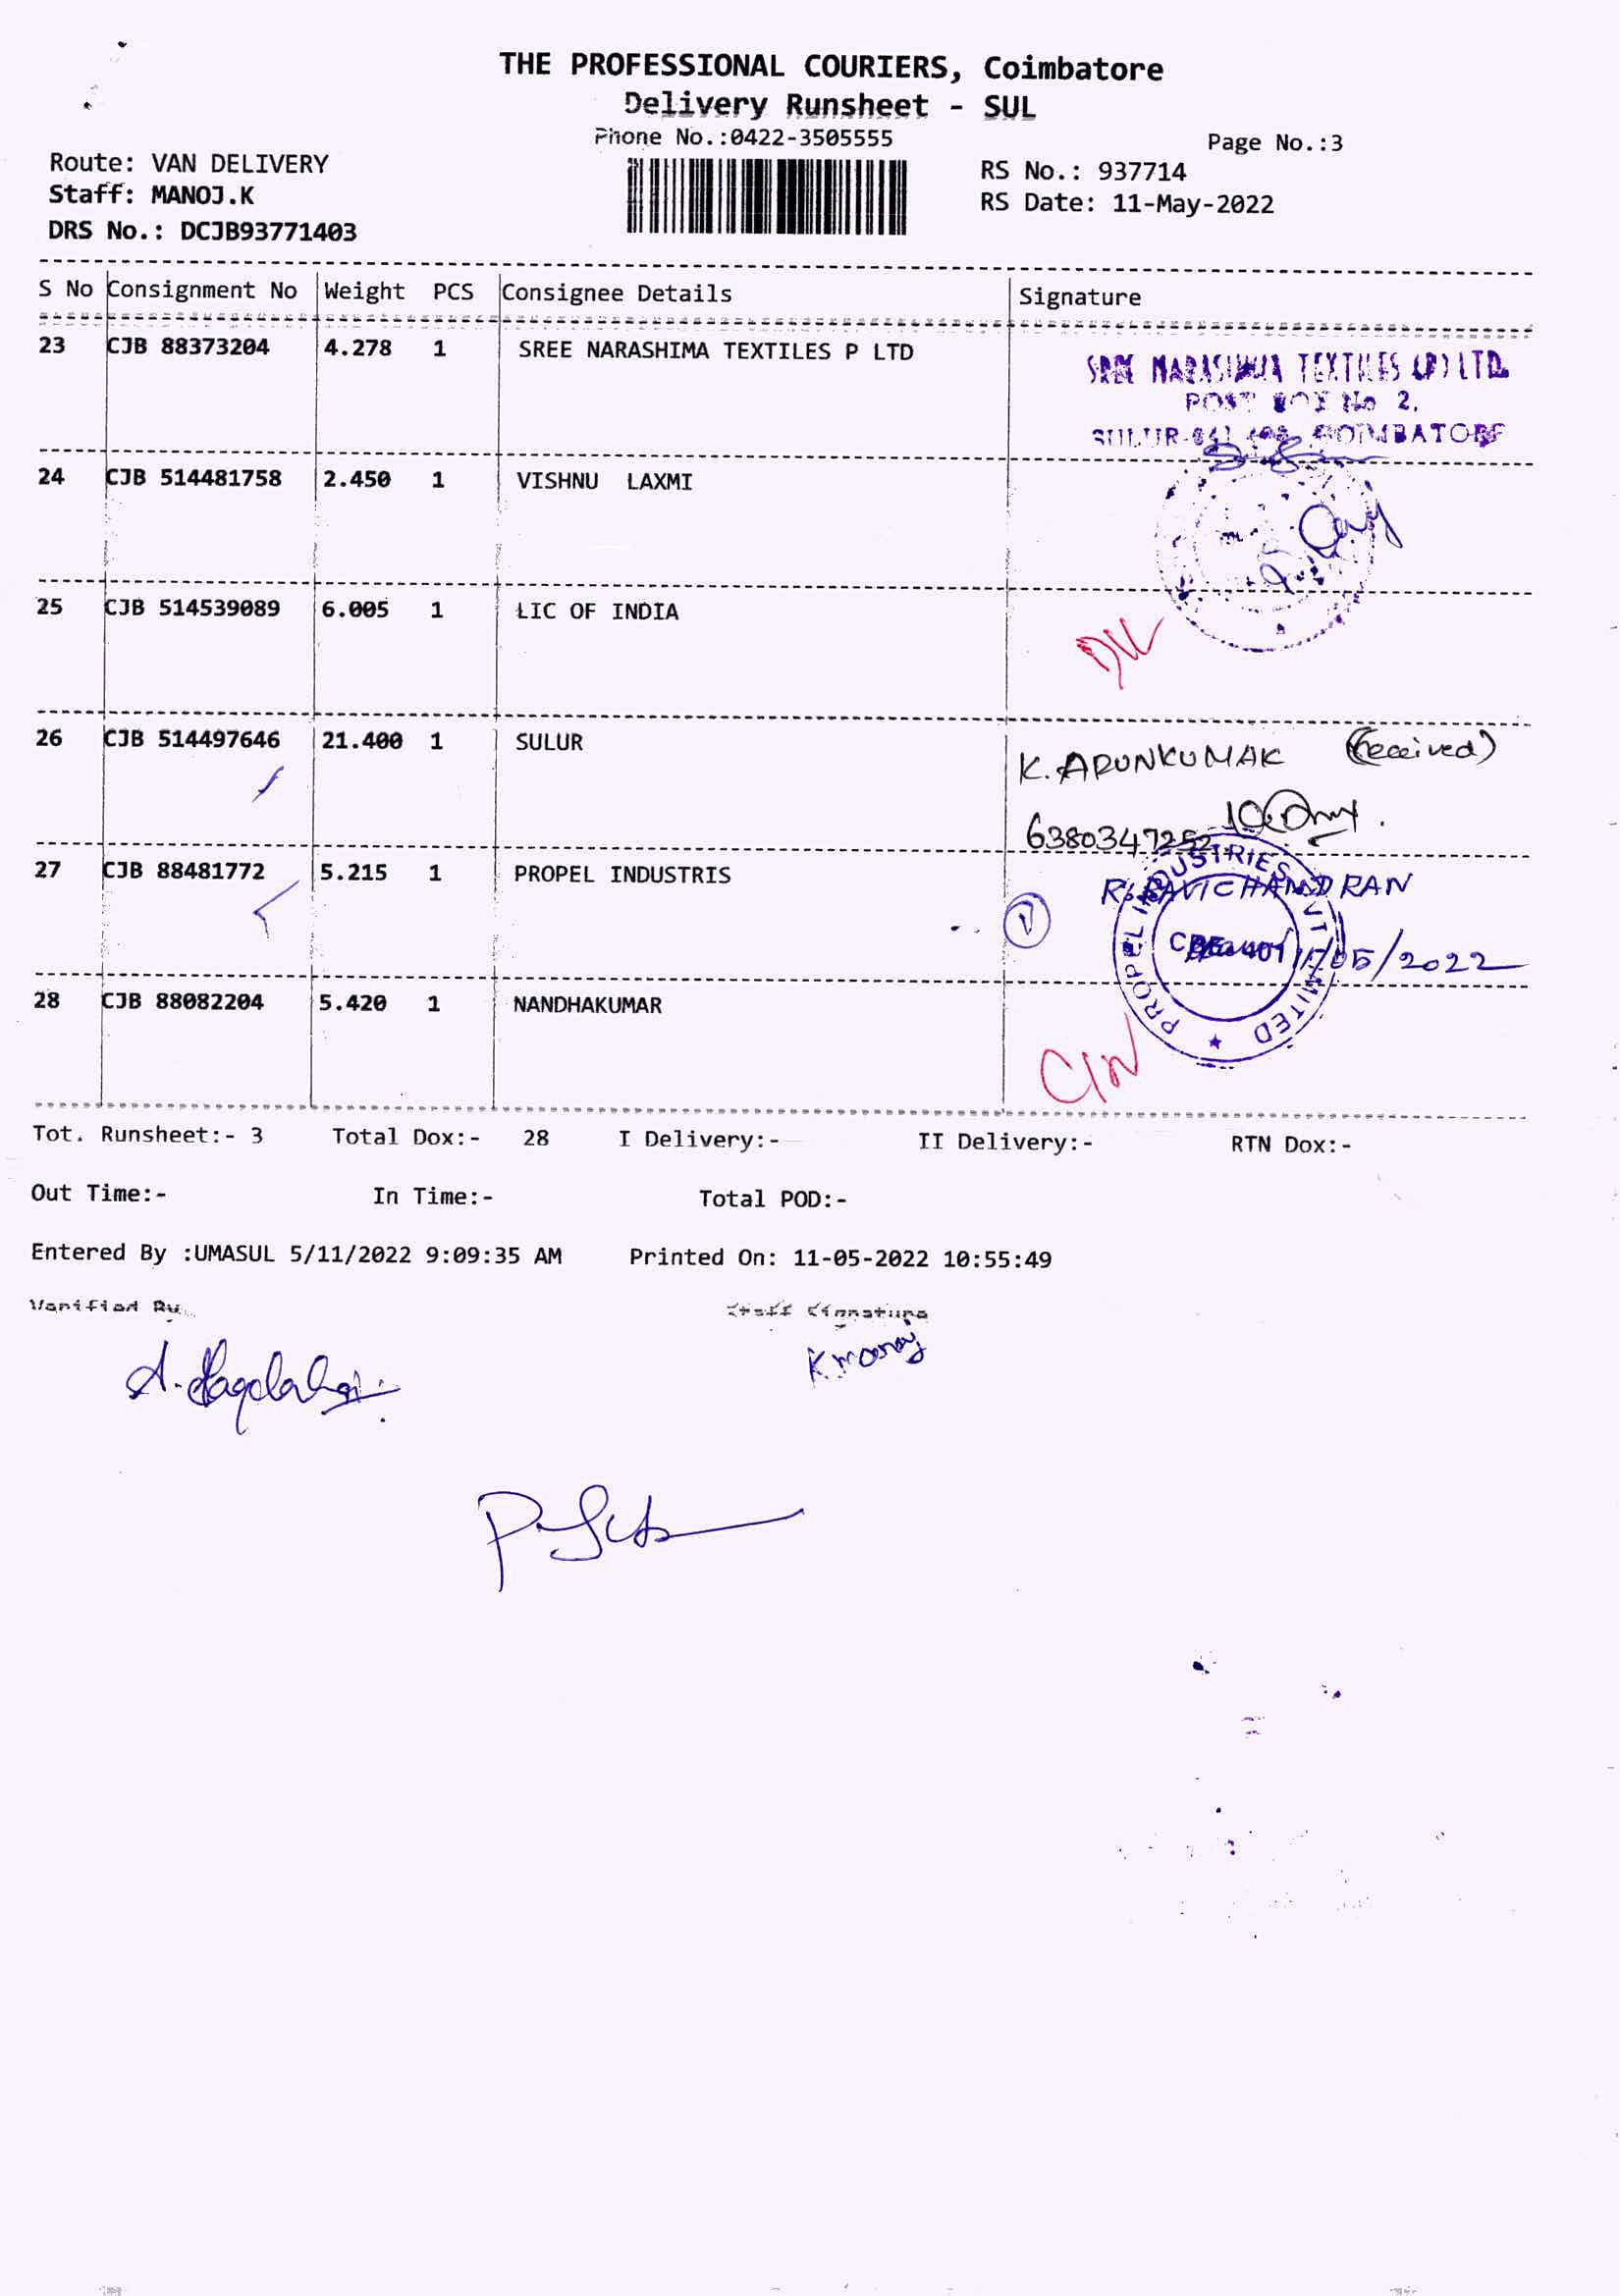 THE PROFESSIONAL COURIERS, Coimbatore
Delivery Runsheet - SUL
Phone No.:0422-3505555
Page No.:3
Route: VAN DELIVERY
RS No.: 937714
Staff: MANOJ.K
RS Date: 11-May-2022
DRS No.: DCJB93771403
S No Consignment No Weight PCS Consignee Details Signature
23 CJB 88373204 4.278 1 SREE NARASHIMA TEXTILES P LTD
SREE NARASIMHA TEXTILES (P) LTD.
POST BOX No 2,
SULUR- COIMBATORE
24 CJB 514481758 2.450 1 VISHNU LAXMI
25 CJB 514539089 6.005 1 LIC OF INDIA
26 CJB 514497646 21.400 1 SULUR
K. ARUNKUMAR (Received)
6380347252
27 CJB 88481772 5.215 1 PROPEL INDUSTRIS
R. RAVICHANDRAN
11/05/2022
PROPEL INDUSTRIES PVT LIMITED
28 CJB 88082204 5.420 1 NANDHAKUMAR
Tot. Runsheet:- 3 Total Dox:- 28 I Delivery:- II Delivery:- RTN Dox:-
Out Time:- In Time:- Total POD:-
Entered By :UMASUL 5/11/2022 9:09:35 AM Printed On: 11-05-2022 10:55:49
Verified By
Staff Signature
K manoj